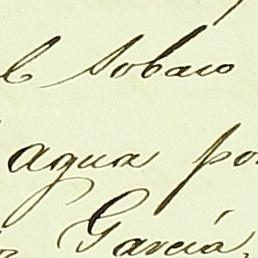 l Sobaco
agua po
García,